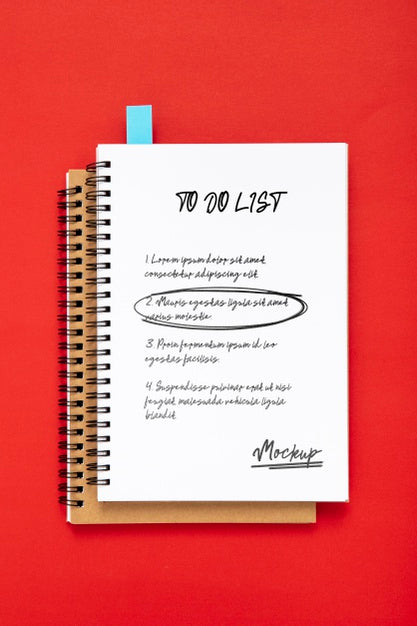 TO DO LIST
1. Lorem ipsum dolor sit amet
consectetur adipiscing elit
2. Mauris egestas ligula sit amet
varius molestie
3. Proin fermentum ipsum id leo
egestas facilisis
4. Suspendisse pulvinar erat ut nisi
feugiat malesuada vehicula ligula
blandit
Mockup